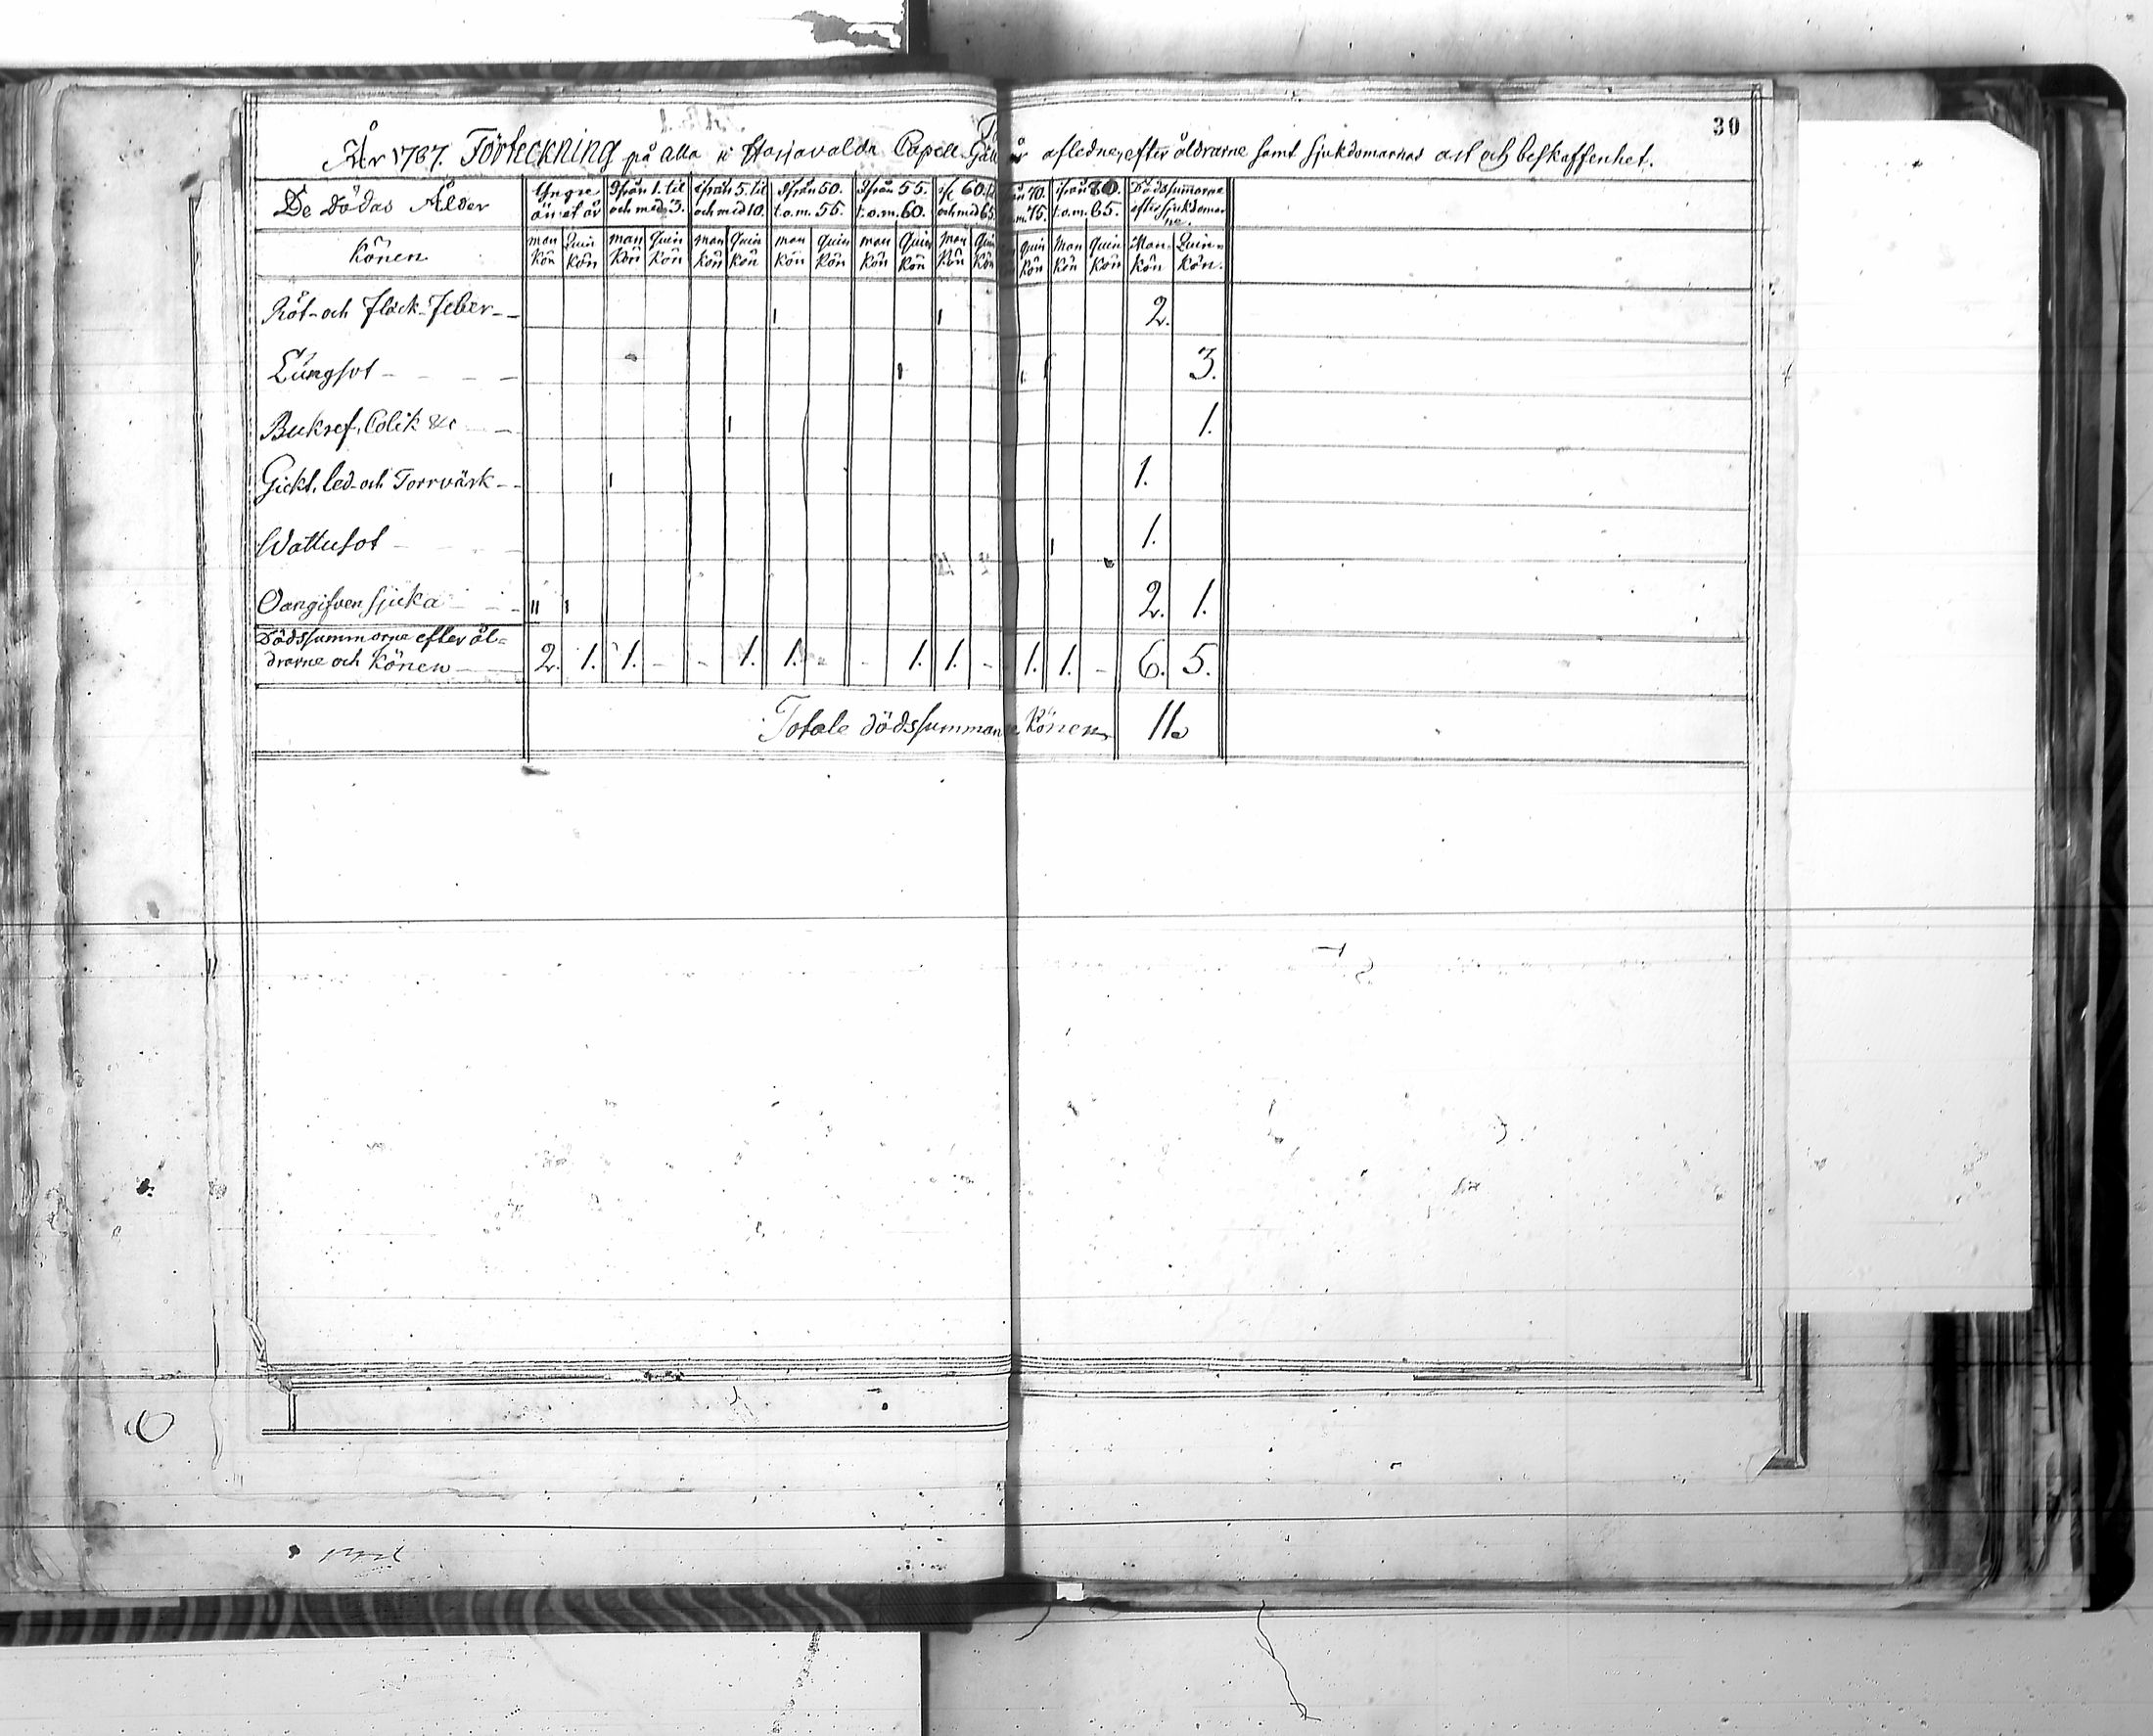 30
År 1787. Förteckning på alla i Harjavalda Capell-Gäll aflednes, efter åldrarne samt sjukdomarnas art och beskaffenhet.
De dödas Ålder | Yngre än et år | Ifrån 1. til och med 3. | ifrån 5. til och med 10. | Ifrån 50. t.o.m. 55. | Ifrån 55. t.o.m. 60. | if. 60. och med 65 | ån 70. m. 75. | ifrån 80. t.o.m. 85. | Dödssummorne efter sjukdomarne.
Könen | man kön | Quin kön | man kön | Quin kön | man kön | Quin kön | man kön | quin kön | man kön | Quin kön | man kön | Quin kön | quin kön | Man kön | Quin kön | Man-kön | Quin-kön.
Röt- och Fläck-Feber - - | ı | ı | 2.
Lungsot - - - - | ı | ı. | ı | 3.
Bukref, Colik &c - - | ı | 1.
Gickt, led- och Torrvärk - - | ı | 1.
Wattusot - - - | ı | 1.
Oangifven sjuka - - - | ıı | ı | 2. | 1.
Dödssummorne efter ål-
drarne och Könen | 2. | 1. | 1. | - | - | 1. | 1. | - | - | 1. | 1. | - | 1. | 1. | - | 6. | 5.
Totale dödssumman Könen | 11.